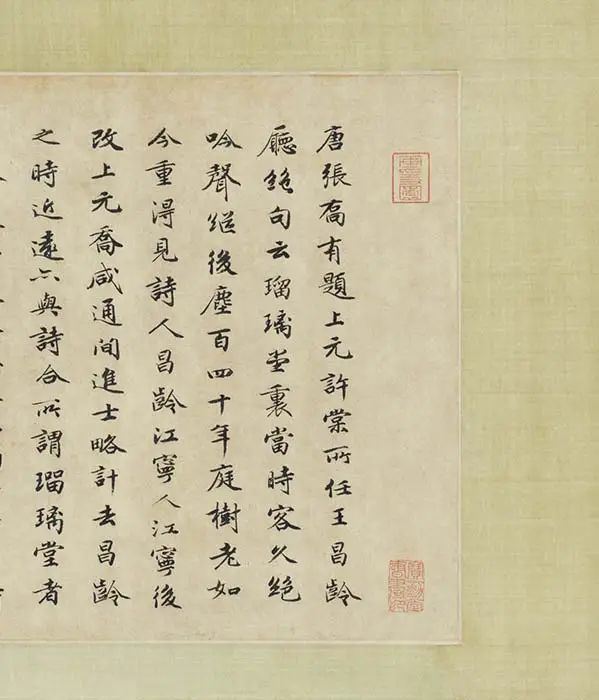 唐張喬有題上元許棠所任王昌齡
廳絶句云瑠璃堂裏當時客久絶
吟聲繼後塵百四十年庭樹老如
今重得見詩人昌齡江寧人江寧後
改上元喬咸通間進士略計去昌齡
之時近遠亦與詩合所謂瑠璃堂者